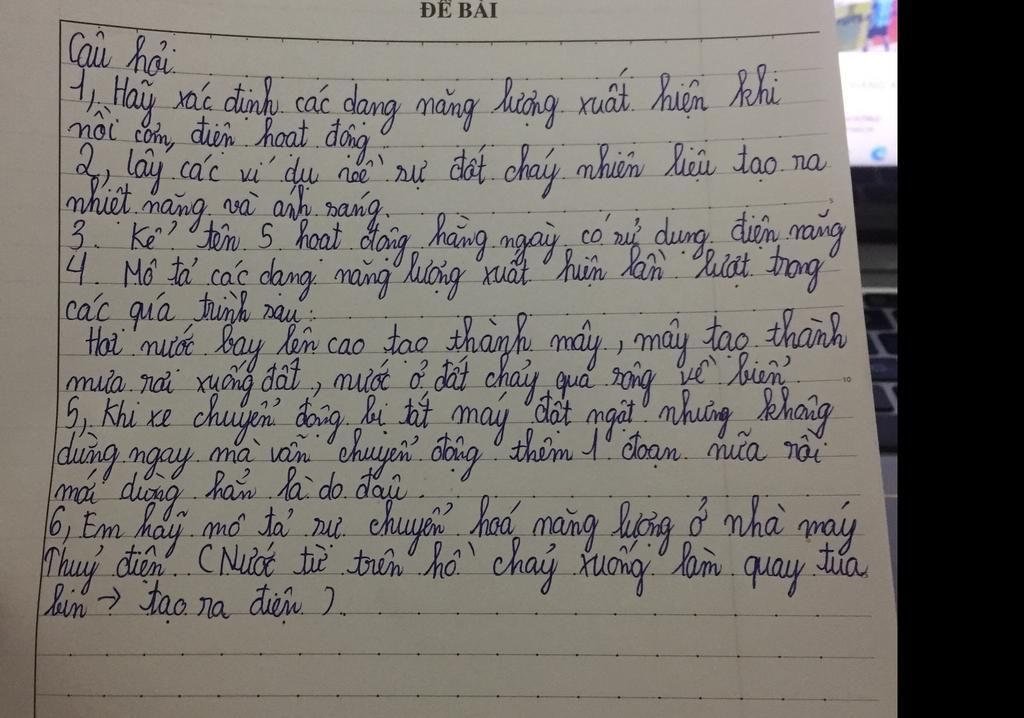 ĐỀ BÀI
Câu hỏi:
1, Hãy xác định các dạng năng lượng xuất hiện khi
nồi cơm, điện hoạt động
2, lấy các ví dụ về sự đốt cháy nhiên liệu tạo ra
nhiệt năng và ánh sáng.
3. Kể tên 5 hoạt động hằng ngày có sử dụng điện năng
4. Mô tả các dạng năng lượng xuất hiện lần lượt trong
các quá trình sau:
Hơi nước bay lên cao tạo thành mây, mây tạo thành
mưa rơi xuống đất, nước ở đất chảy qua sông về biển.
5, Khi xe chuyển động bị tắt máy đột ngột nhưng không
dừng ngay mà vẫn chuyển động thêm 1 đoạn nữa rồi
mới dừng hẳn là do đâu.
6, Em hãy mô tả sự chuyển hoá năng lượng ở nhà máy
Thuỷ điện. (Nước từ trên hồ chảy xuống làm quay tua
bin → tạo ra điện).